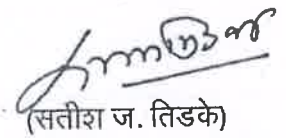 (सतीश ज. तिडके)